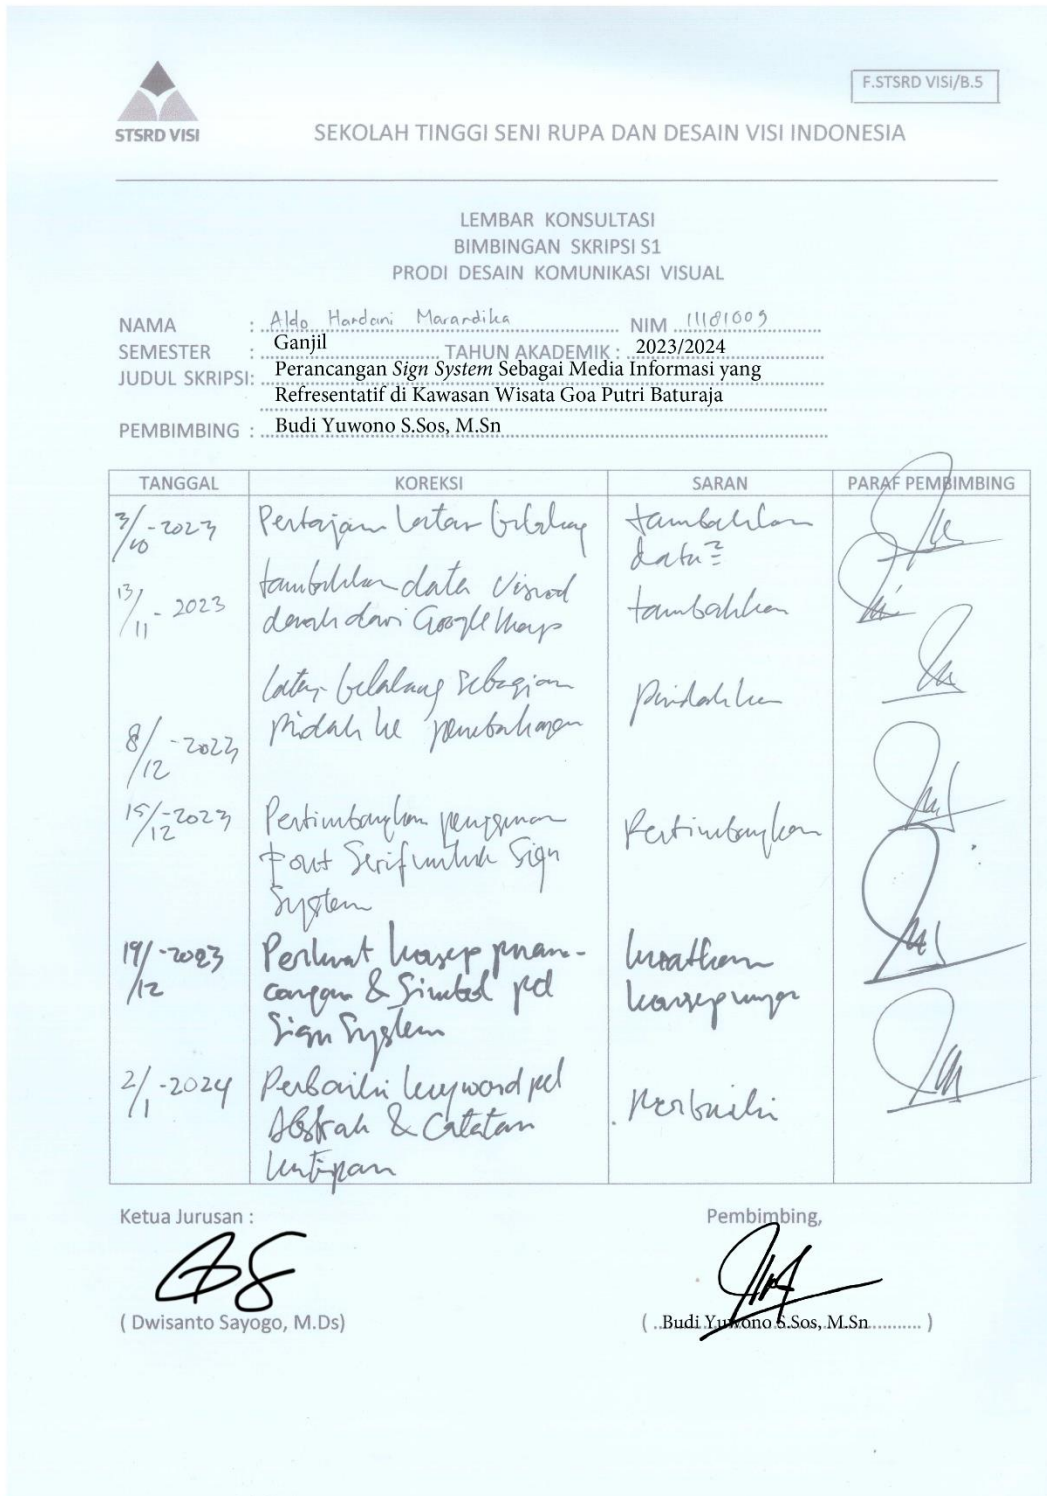 F.STSRD VISi/B.5
STSRD VISI
SEKOLAH TINGGI SENI RUPA DAN DESAIN VISI INDONESIA
LEMBAR KONSULTASI
BIMBINGAN SKRIPSI S1
PRODI DESAIN KOMUNIKASI VISUAL
NAMA : Aldo Hardani Marardika NIM 11181009
SEMESTER : Ganjil TAHUN AKADEMIK : 2023/2024
JUDUL SKRIPSI: Perancangan Sign System Sebagai Media Informasi yang
Refresentatif di Kawasan Wisata Goa Putri Baturaja
PEMBIMBING : Budi Yuwono S.Sos, M.Sn
TANGGAL KOREKSI SARAN PARAF PEMBIMBING
3/10-2023 Pertajam latar belakang tambahkan
data²
13/11-2023 tambahkan data visual tambahkan
denah dari Google Maps
latar belakang sebagian pindahkan
8/12-2023 pindah ke pembahasan
15/12-2023 Pertimbangkan penggunaan Pertimbangkan
font Serif untuk Sign
System
19/12-2023 Perkuat konsep peran- kuatkan
cangan & Simbol pd konsepnya
Sign System
2/1-2024 Perbaiki keyword pd Perbaiki
Abstrak & Catatan
kutipan
Ketua Jurusan : Pembimbing,
( Dwisanto Sayogo, M.Ds) ( Budi Yuwono S.Sos, M.Sn )